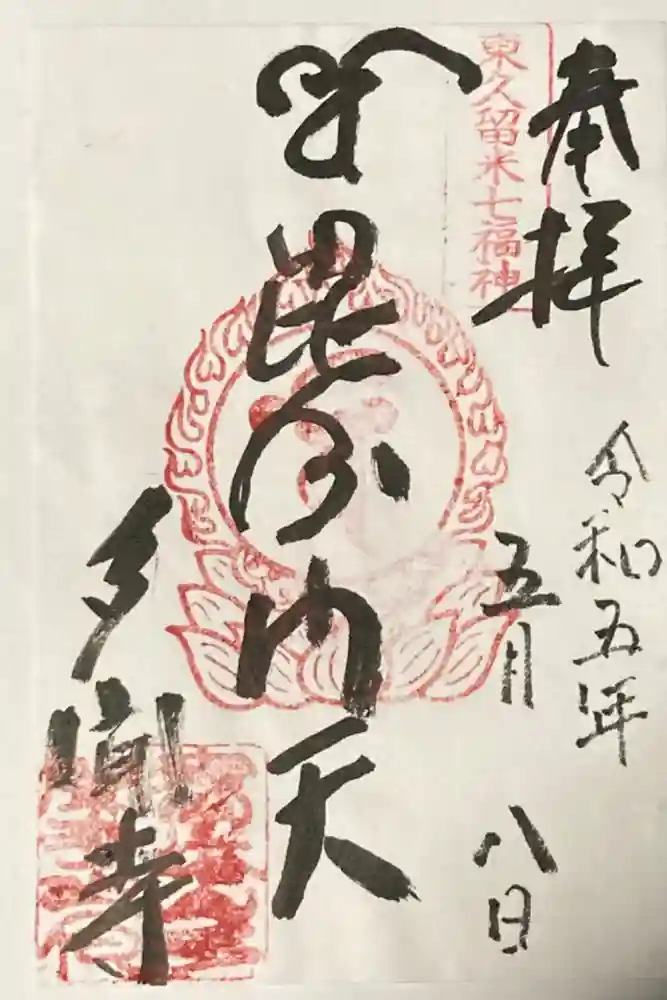 奉拝
令和五年
五月
八日
東久留米七福神
毘沙門天
多聞寺